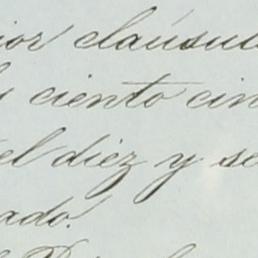 ior cláusula
ciento cin
el diez y se
ado.